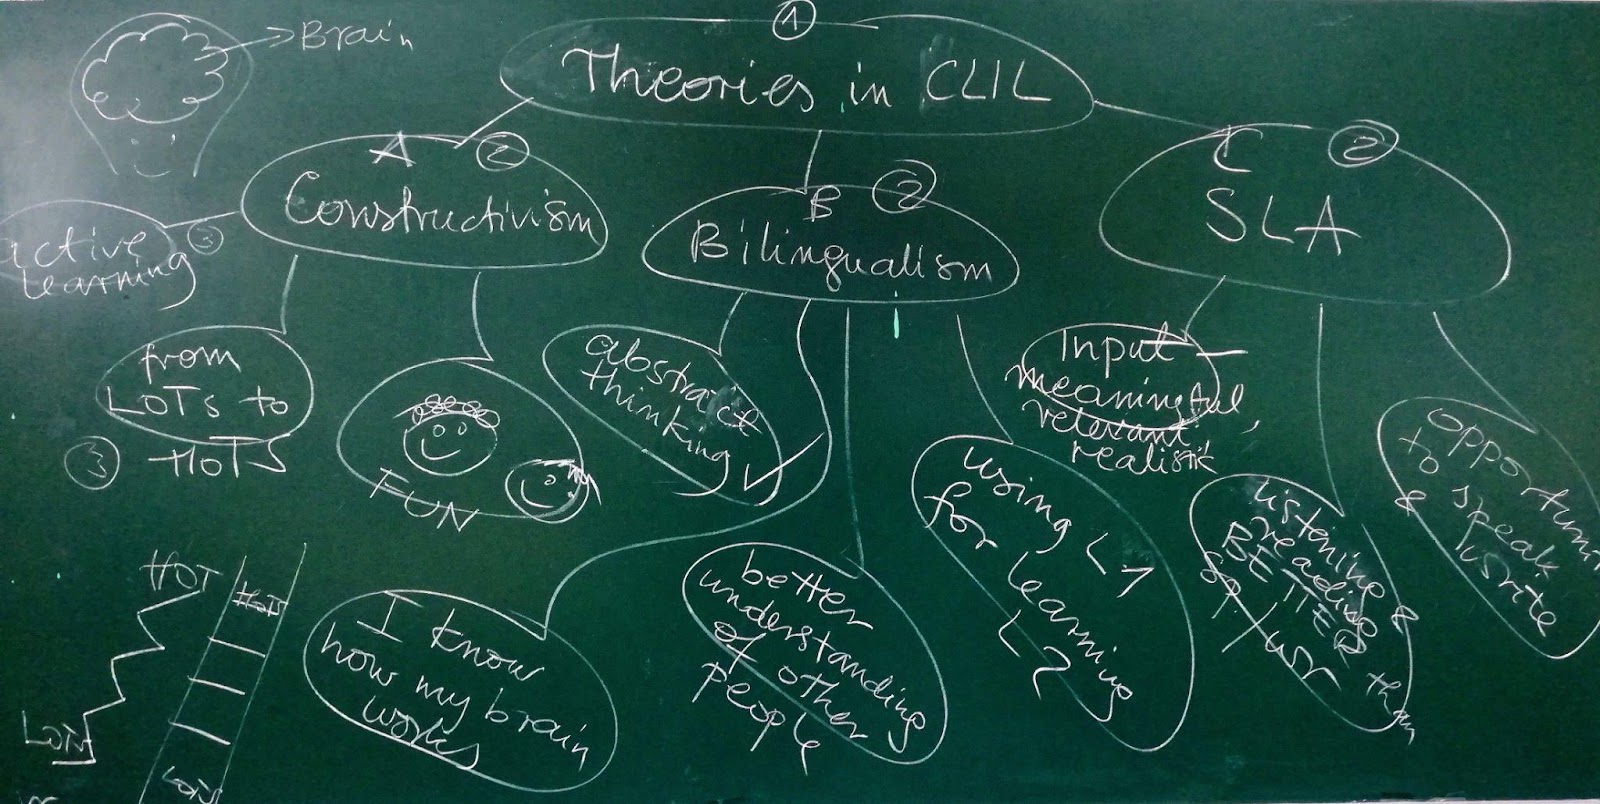 Brain
1
Theories in CLIL
A 2
Constructivism
B 2
Bilingualism
C 2
SLA
active 3
learning
from
LOTs to
HOTS
3
FUN
abstract
thinking
I know
how my brain
works
better
understanding
of other
people
using L1
for learning
L2
Input
meaningful,
relevant
realistik
listening &
reading
BETTER than
sp / wr
opportuni
to speak
& write
HOT
LOTs
HOTS
LOTS